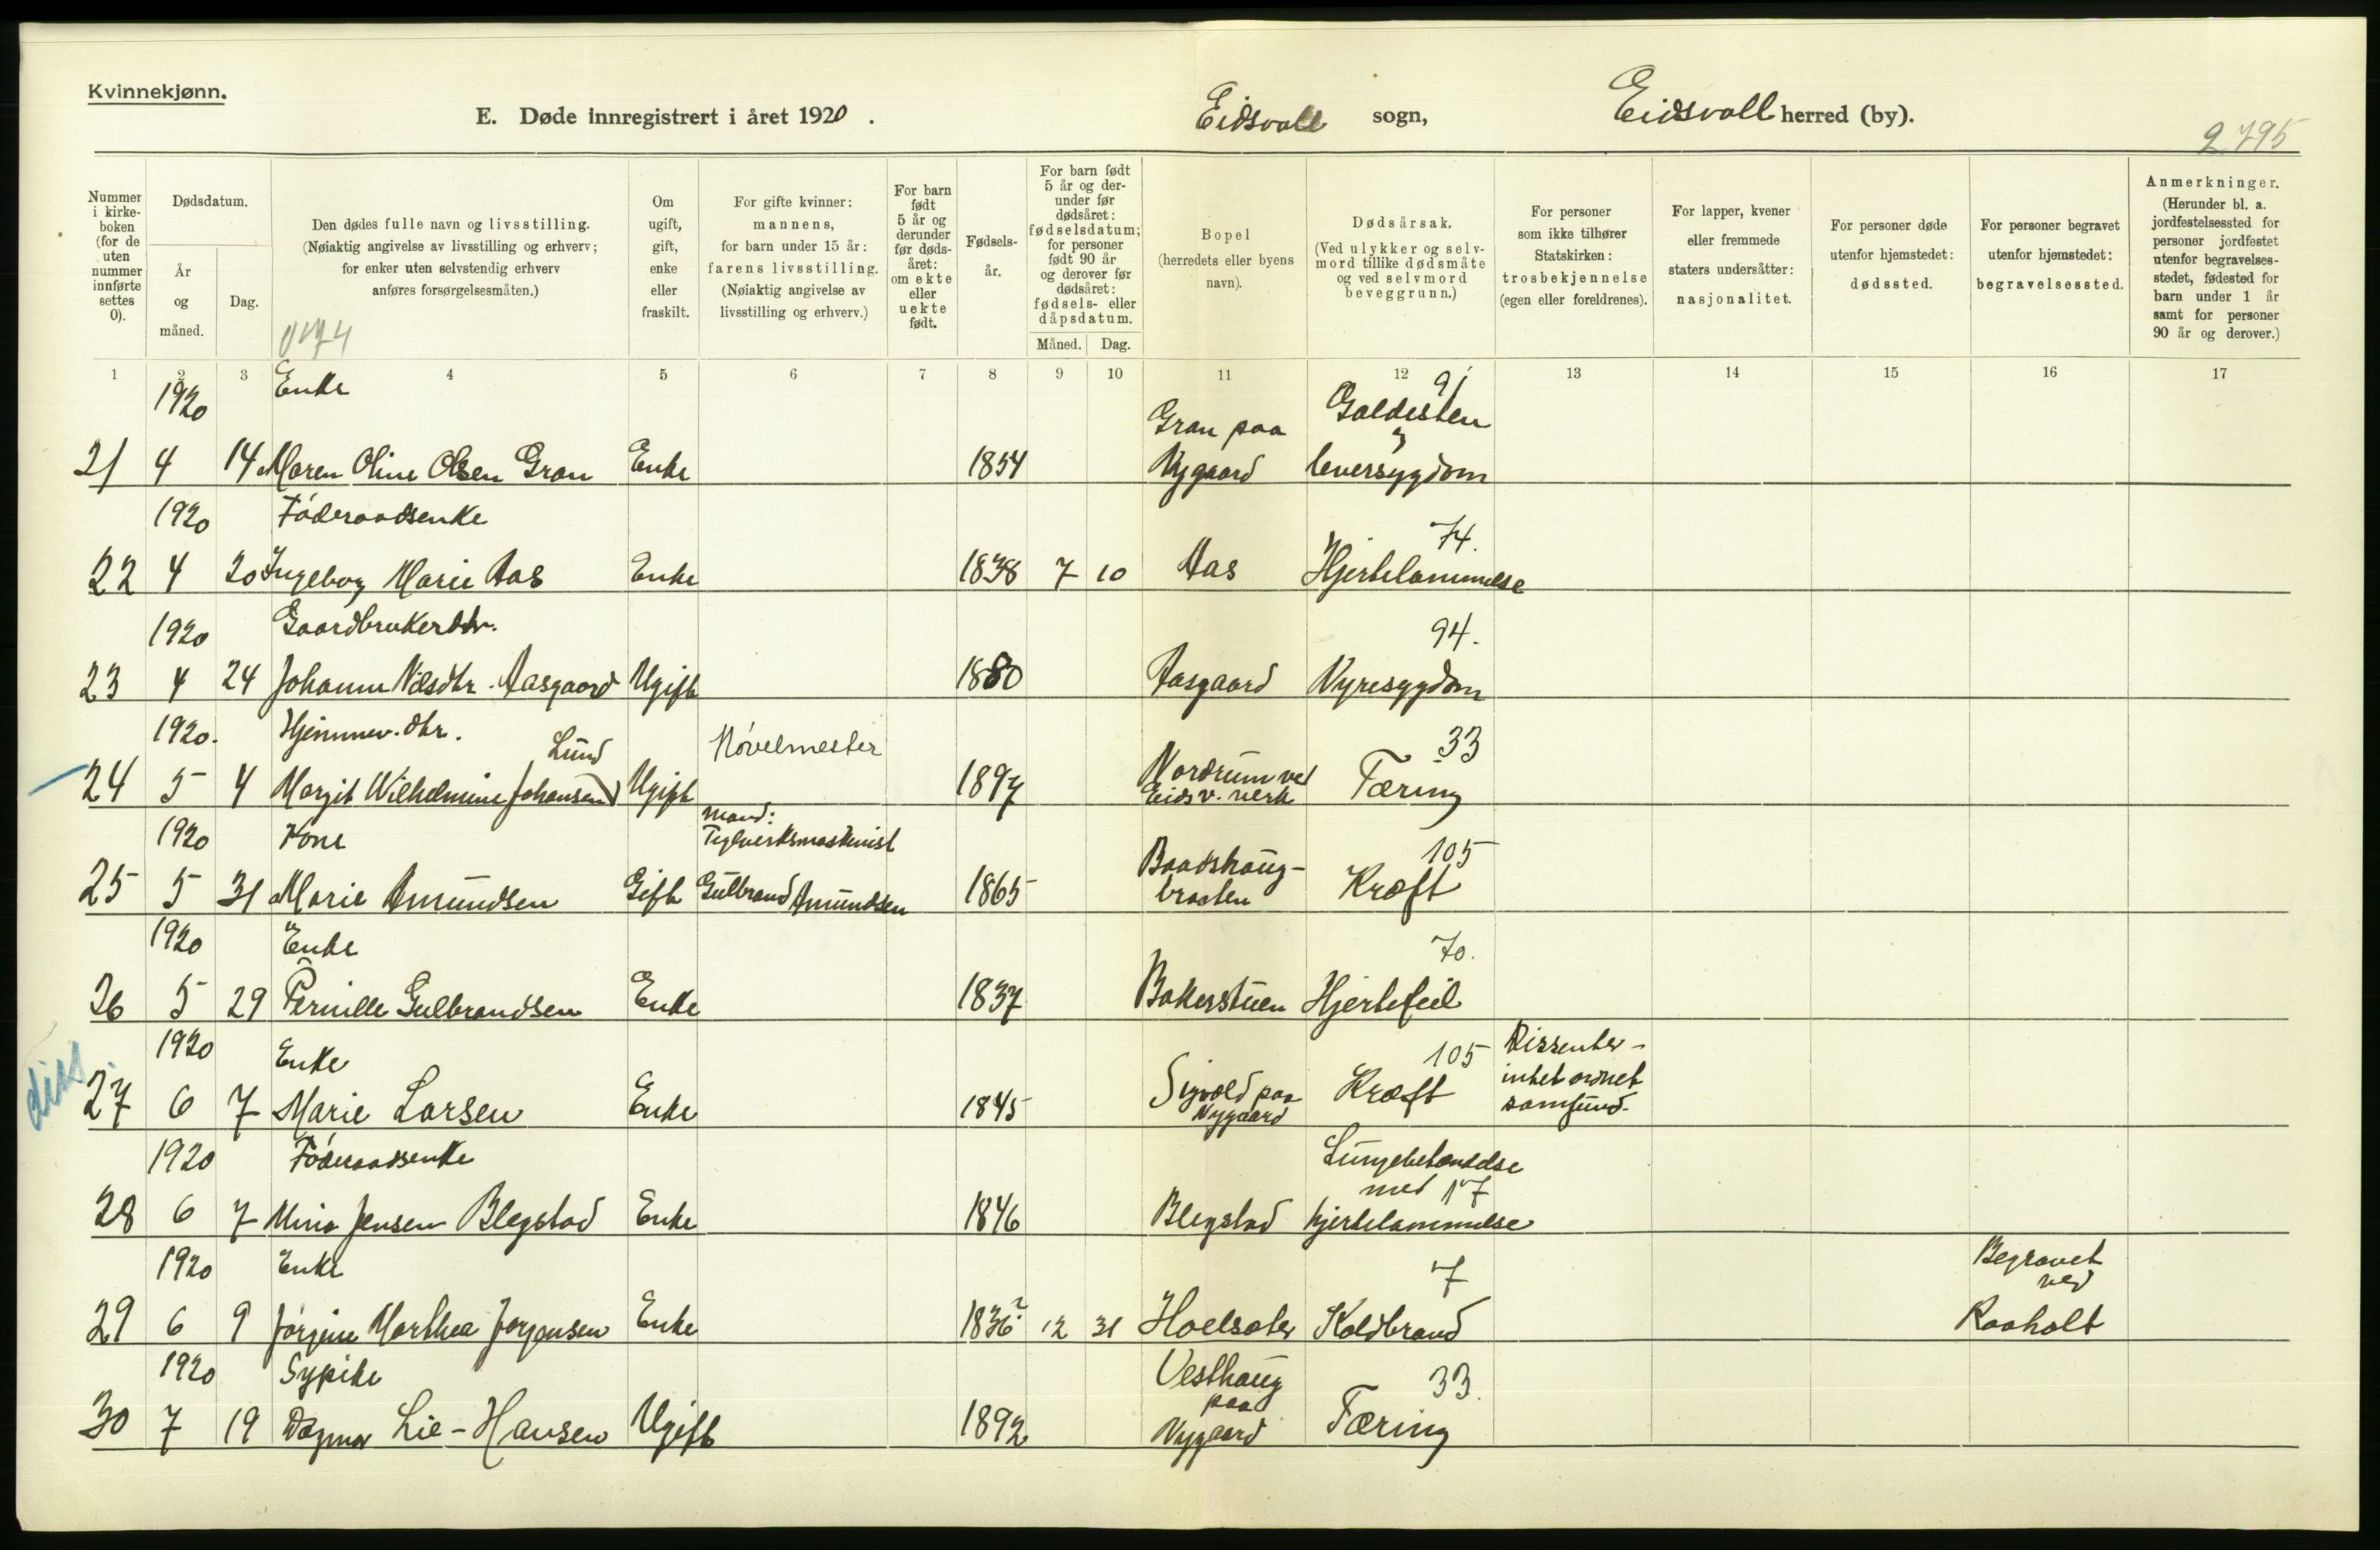 Kvinnekjønn.
E. Døde innregistrert i året 1920. Eidsvoll sogn, Eidsvoll herred (by).
2795
Nummer i kirkeboken (for de uten nummer innførte settes 0).
Dødsdatum.
År og måned.
Dag.
Den dødes fulle navn og livsstilling. (Nøiaktig angivelse av livsstilling og erhverv; for enker uten selvstendig erhverv anføres forsørgelsesmåten.)
Om ugift, gift, enke eller fraskilt.
For gifte kvinner: mannens, for barn under 15 år: farens livsstilling. (Nøiaktig angivelse av livsstilling og erhverv.)
For barn født 5 år og derunder før dødsåret: om ekte eller uekte født.
Fødselsår.
For barn født 5 år og derunder før dødsåret: fødselsdatum; for personer født 90 år og derover før dødsåret: fødsels- eller dåpsdatum.
Måned. Dag.
Bopel (herredets eller byens navn).
Dødsårsak. (Ved ulykker og selvmord tillike dødsmåte og ved selvmord beveggrunn.)
For personer som ikke tilhører Statskirken: trosbekjennelse (egen eller foreldrenes).
For lapper, kvener eller fremmede staters undersåtter: nasjonalitet.
For personer døde utenfor hjemstedet: dødssted.
For personer begravet utenfor hjemstedet: begravelsessted.
Anmerkninger. (Herunder bl. a. jordfestelsessted for personer jordfestet utenfor begravelsesstedet, fødested for barn under 1 år samt for personer 90 år og derover.)
1 2 3 4 5 6 7 8 9 10 11 12 13 14 15 16 17
1920 Enke Gran paa Galdesten 91
21 4 14 Maren Oline Olsen Gran Enke 1854 Nygaard leversygdom
1920 Föderaadsenke 74.
22 4 20 Ingeborg Marie Aas Enke 1838 7 10 Aas Hjertelammelse
1920 Gaardbrukerdtr. 94.
23 4 24 Johanne Nilsdtr. Aasgaard Ugift 1880 Aasgaard Nyresygdom
1920. Hjemmev. dtr. Lund Hóvelmester Nordrum ved 33
24 5 4 Margit Wilhelmine Johansen Ugift 1897 Eidsv. verk Tæring
1920 Kone Mand: Teglverksmaskinist Baadshaug- 105
25 5 31 Marie Amundsen Gift Gulbrand Amundsen 1865 braaten Kræft
1920 Enke 70.
26 5 29 Pernille Gulbrandsen Enke 1837 Bakerstuen Hjertefeil
1920 Enke 105 Dissenter-
diss
27 6 7 Marie Larsen Enke 1845 Sigvold paa Nygaard Kræft intet ordnet samfund.
1920 Föderaadsenke Lungebetændelse med 17
28 6 7 Mina Jensen Blegstad Enke 1846 Blegstad hjertelammelse
1920 Enke 7 Begravet ved
29 6 9 Jörgine Marthea Jorgensen Enke 1836? 12 31 Hoelsæter Koldbrand Raaholt
1920 Sypike Vesthaug paa 33.
30 7 19 Dagmar Lie-Hansen Ugift 1892 Nygaard Tæring